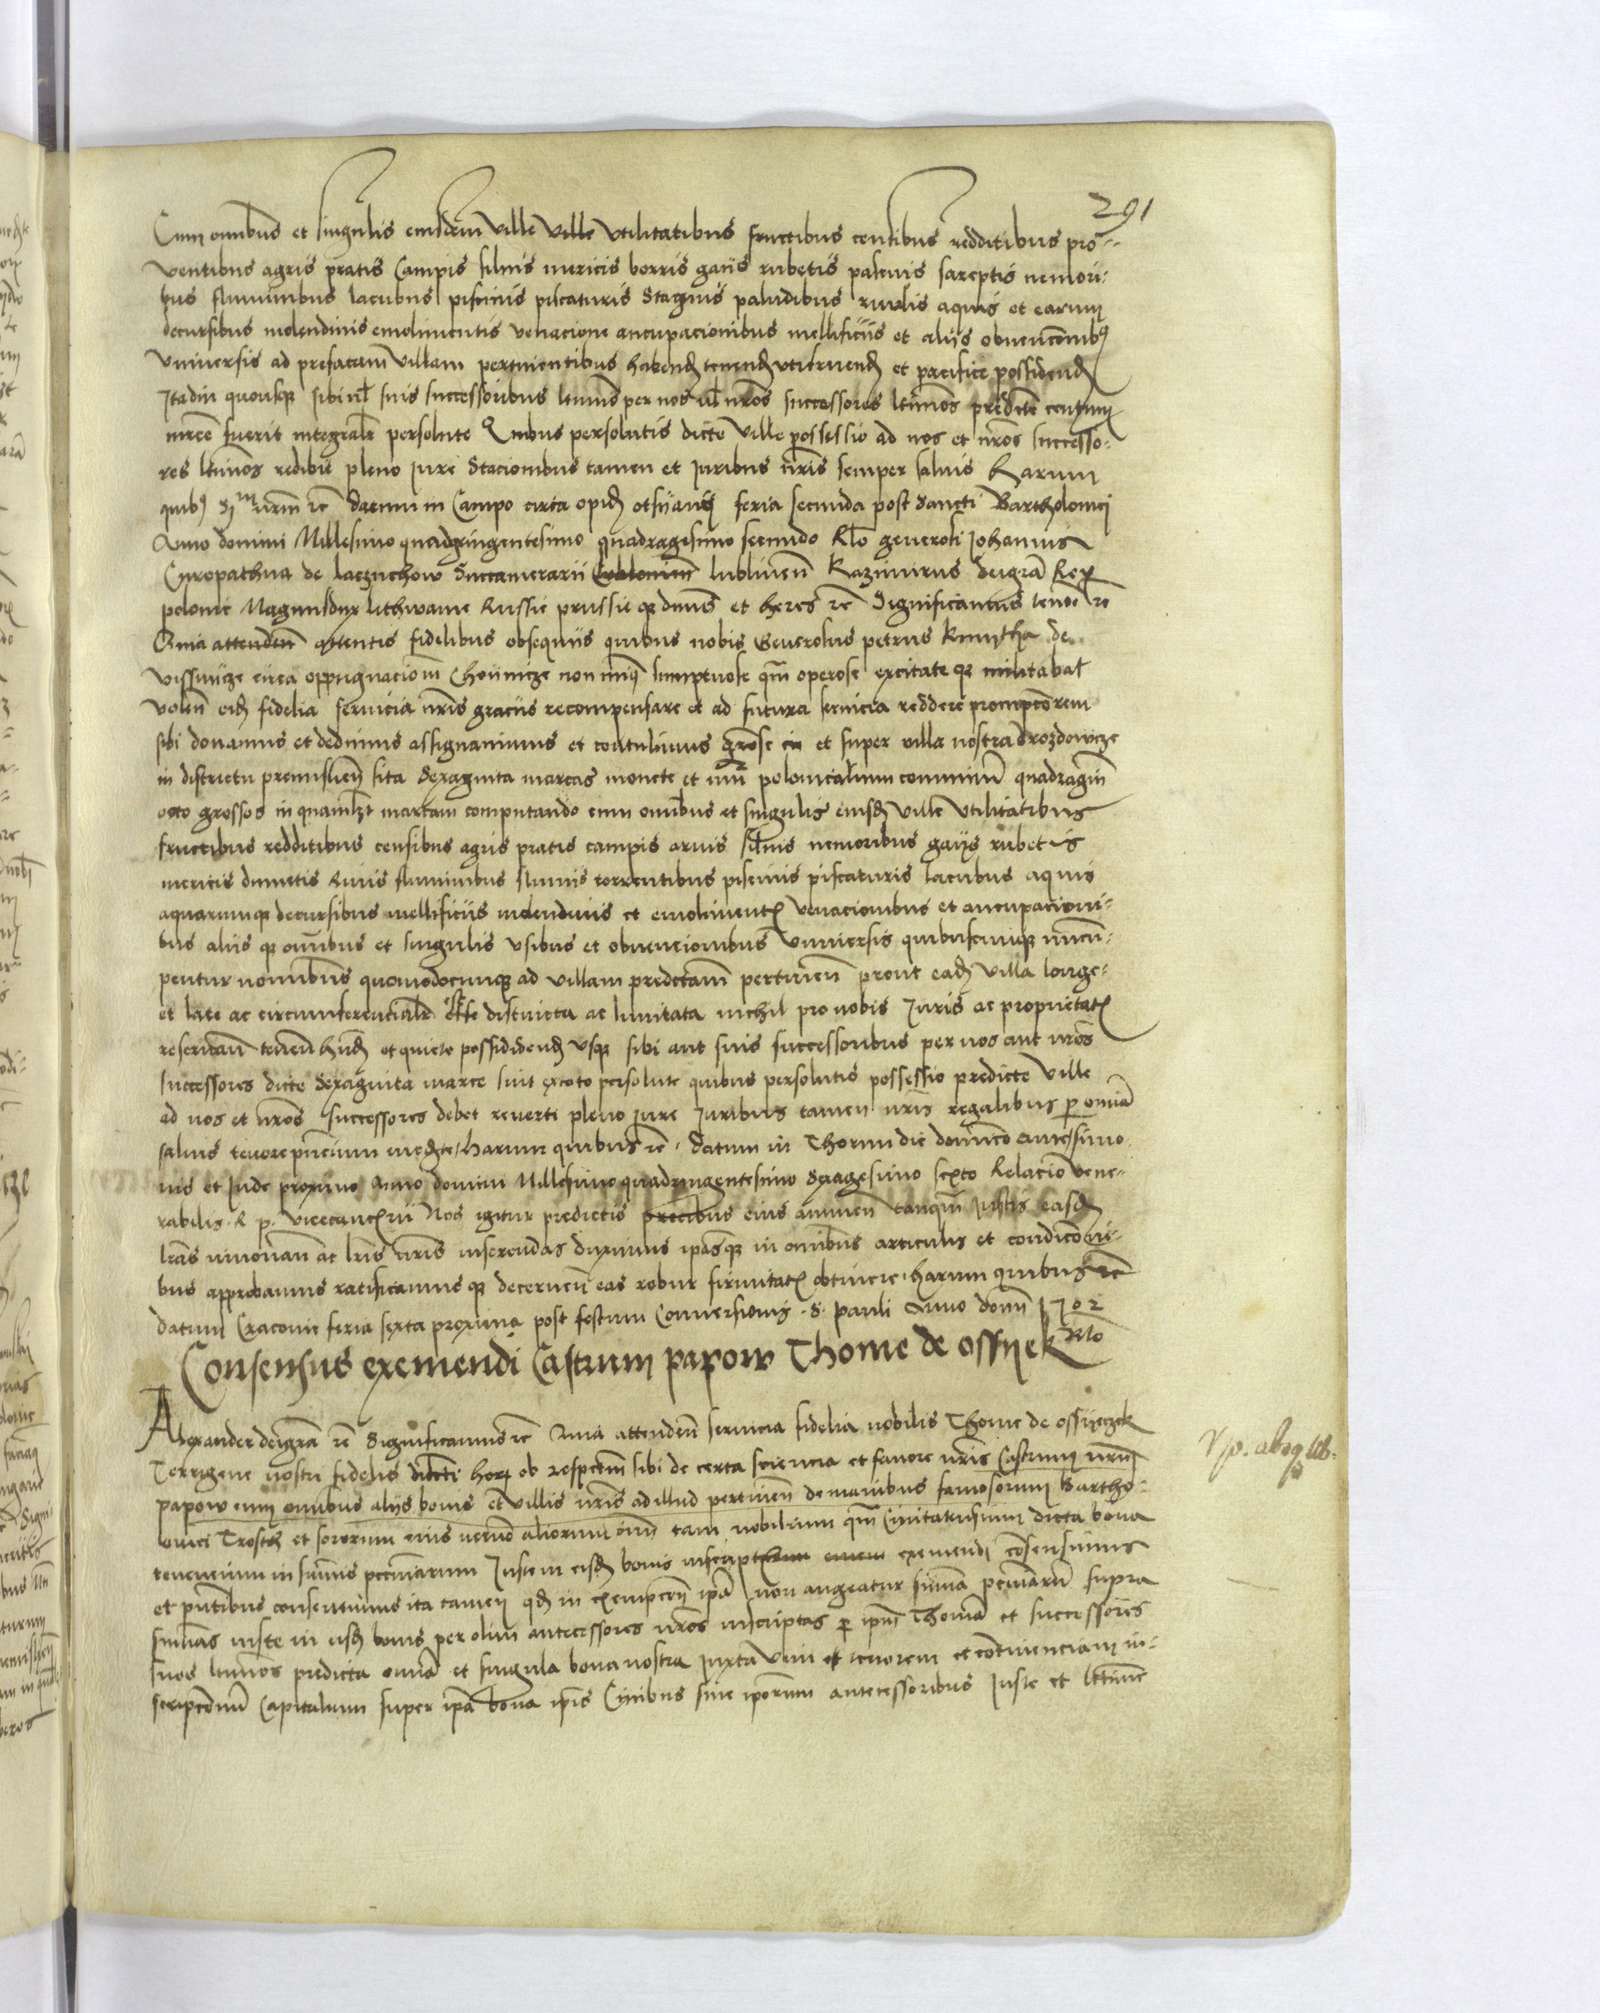 291
Cum omnibus et singulis eiusdem ville ville utilitatibus fructibus censibus redditibus pro-
ventibus agris pratis Campis silvis mericis borris gaiis rubetis pascuis sareptis nemori-
bus fluminibus lacubus piscinis piscaturis Stagnis paludibus rivulis aquis et earum
decursibus molendinis emolimentis venacione aucupacionibus mellificiis et aliis obvencionibus
universis ad prefatam villam pertinentibus habend tenend utifruend et pacifice possidend
Itadiu quousque sibi vel suis successoribus ltimis per nos vel nros successores ltimos predicte centum
mrce fuerit integralr persolute Quibus persolutis dicte ville possessio ad nos et nros successo-
res ltimos redibit pleno iure Stacionibus tamen et iuribus nris semper salvis Harum
quibus Sm nrm rc datum in Campo circa opid feria secunda post sancti Bartholomei
Anno domini Millesimo quadringentesimo quadragesimo secundo Rlo generosi Johannis
Cyropathna de Laczuchow Succamerarii lublinen Kazimirus deigra Rex
polonie Magnusdux lithwanie Russie prussie que dnus et heres rc Significamus tenore rc
Quia attenden attentis fidelibus obsequiis quibus nobis Generosus petrus Kmytha de
Vissnicze circa oppugnacionem Choinicze non minus sumptuose quam operose excitate que militabat
volen eius fidelia servicia nris graciis recompensare et ad futura servicia reddere prompciorem
sibi donamus et dedimus assignavimus et contulimus in et super villa nostra drozdowicze
in districtu premislien sita Sexaginta marcas monete et numeri polonicalium communium quadraginta
octo grossos in quamlibet marcam computando cum omnibus et singulis eiusd ville utilitatibus
fructibus redditibus censibus agris pratis campis arvis silvis nemoribus gaiis rubetis
mericis dumetis Rivis fluminibus torrentibus piscinis piscaturis lacubus aquis
aquarumque decursibus mellificiis molendinis et emolimentis venacionibus et aucupacioni-
bus aliis que omnibus et singulis usibus et obvencionibus universis quibuscunque nuncu-
pentur nominibus quomodocunque ad villam predictam pertinen prout eadem villa longe-
et late ac circumferencialr est distincta ac limitata nichil pro nobis Juris ac proprietatis
reservan tenen habend et quiete possididend usque sibi aut suis successoribus per nos aut nros
successores dicte Sexaginta marce sint extoto persolute quibus persolutis possessio predicte ville
ad nos et nros successores debet reverti pleno iure iuribus tamen nris regalibus per omnia
salvis tenore pncium mediante Harum quibus rc datum in Thorun die dominico
et Inde proximo Anno domini Millesimo quadringentesimo Sexagesimo sexto Relacio vene-
rabilis R p. vicecancerii Nos igitur predictis precibus eius annuen tanquam Justis easd
lras innovan ac lris nris inserendas duximus ipasque in omnibus articulis et condicioni-
bus approbamus ratificamus que decernen eas robur firmitatis obtinere Harum quibus rc
datum Cracovie feria sexta proxima post festum Conversionis S. pauli Anno domi 1502
Rlo
Consensus exemendi Castrum papow Thome de Ossyek
Alexander deigra rc Significamus rc Quia attenden servicia fidelia nobilis Thome de Ossyeczek
Terrigene nostri fidelis dilecti horum ob respectum sibi de certa sciencia et favore nris Castrum nrum
papow cum omnibus aliis bonis et villis nris ad illud pertinen de manibus famosorum Bartho-
lomei Trosth et sororum eius necno aliorum omnium tam nobilium quam Civitatensium dicta bona
tenencium in summis pecuniarum Juste in eisdem bonis inscriptarum exemendi consensimus
et pntibus consentimus ita tamen quod in exempcione ipa non augeatur summa pecuniarum supra
summas iuste in eisd bonis per olim antecessores nros inscriptas per ipsum Thomam et successores
suos ltimos predicta omnia et singula bona nostra iuxta vim et tenorem et continenciam in-
scripcionum Capitalium super ipa bona ipis Civibus sive iporum antecessoribus Juste et ltime